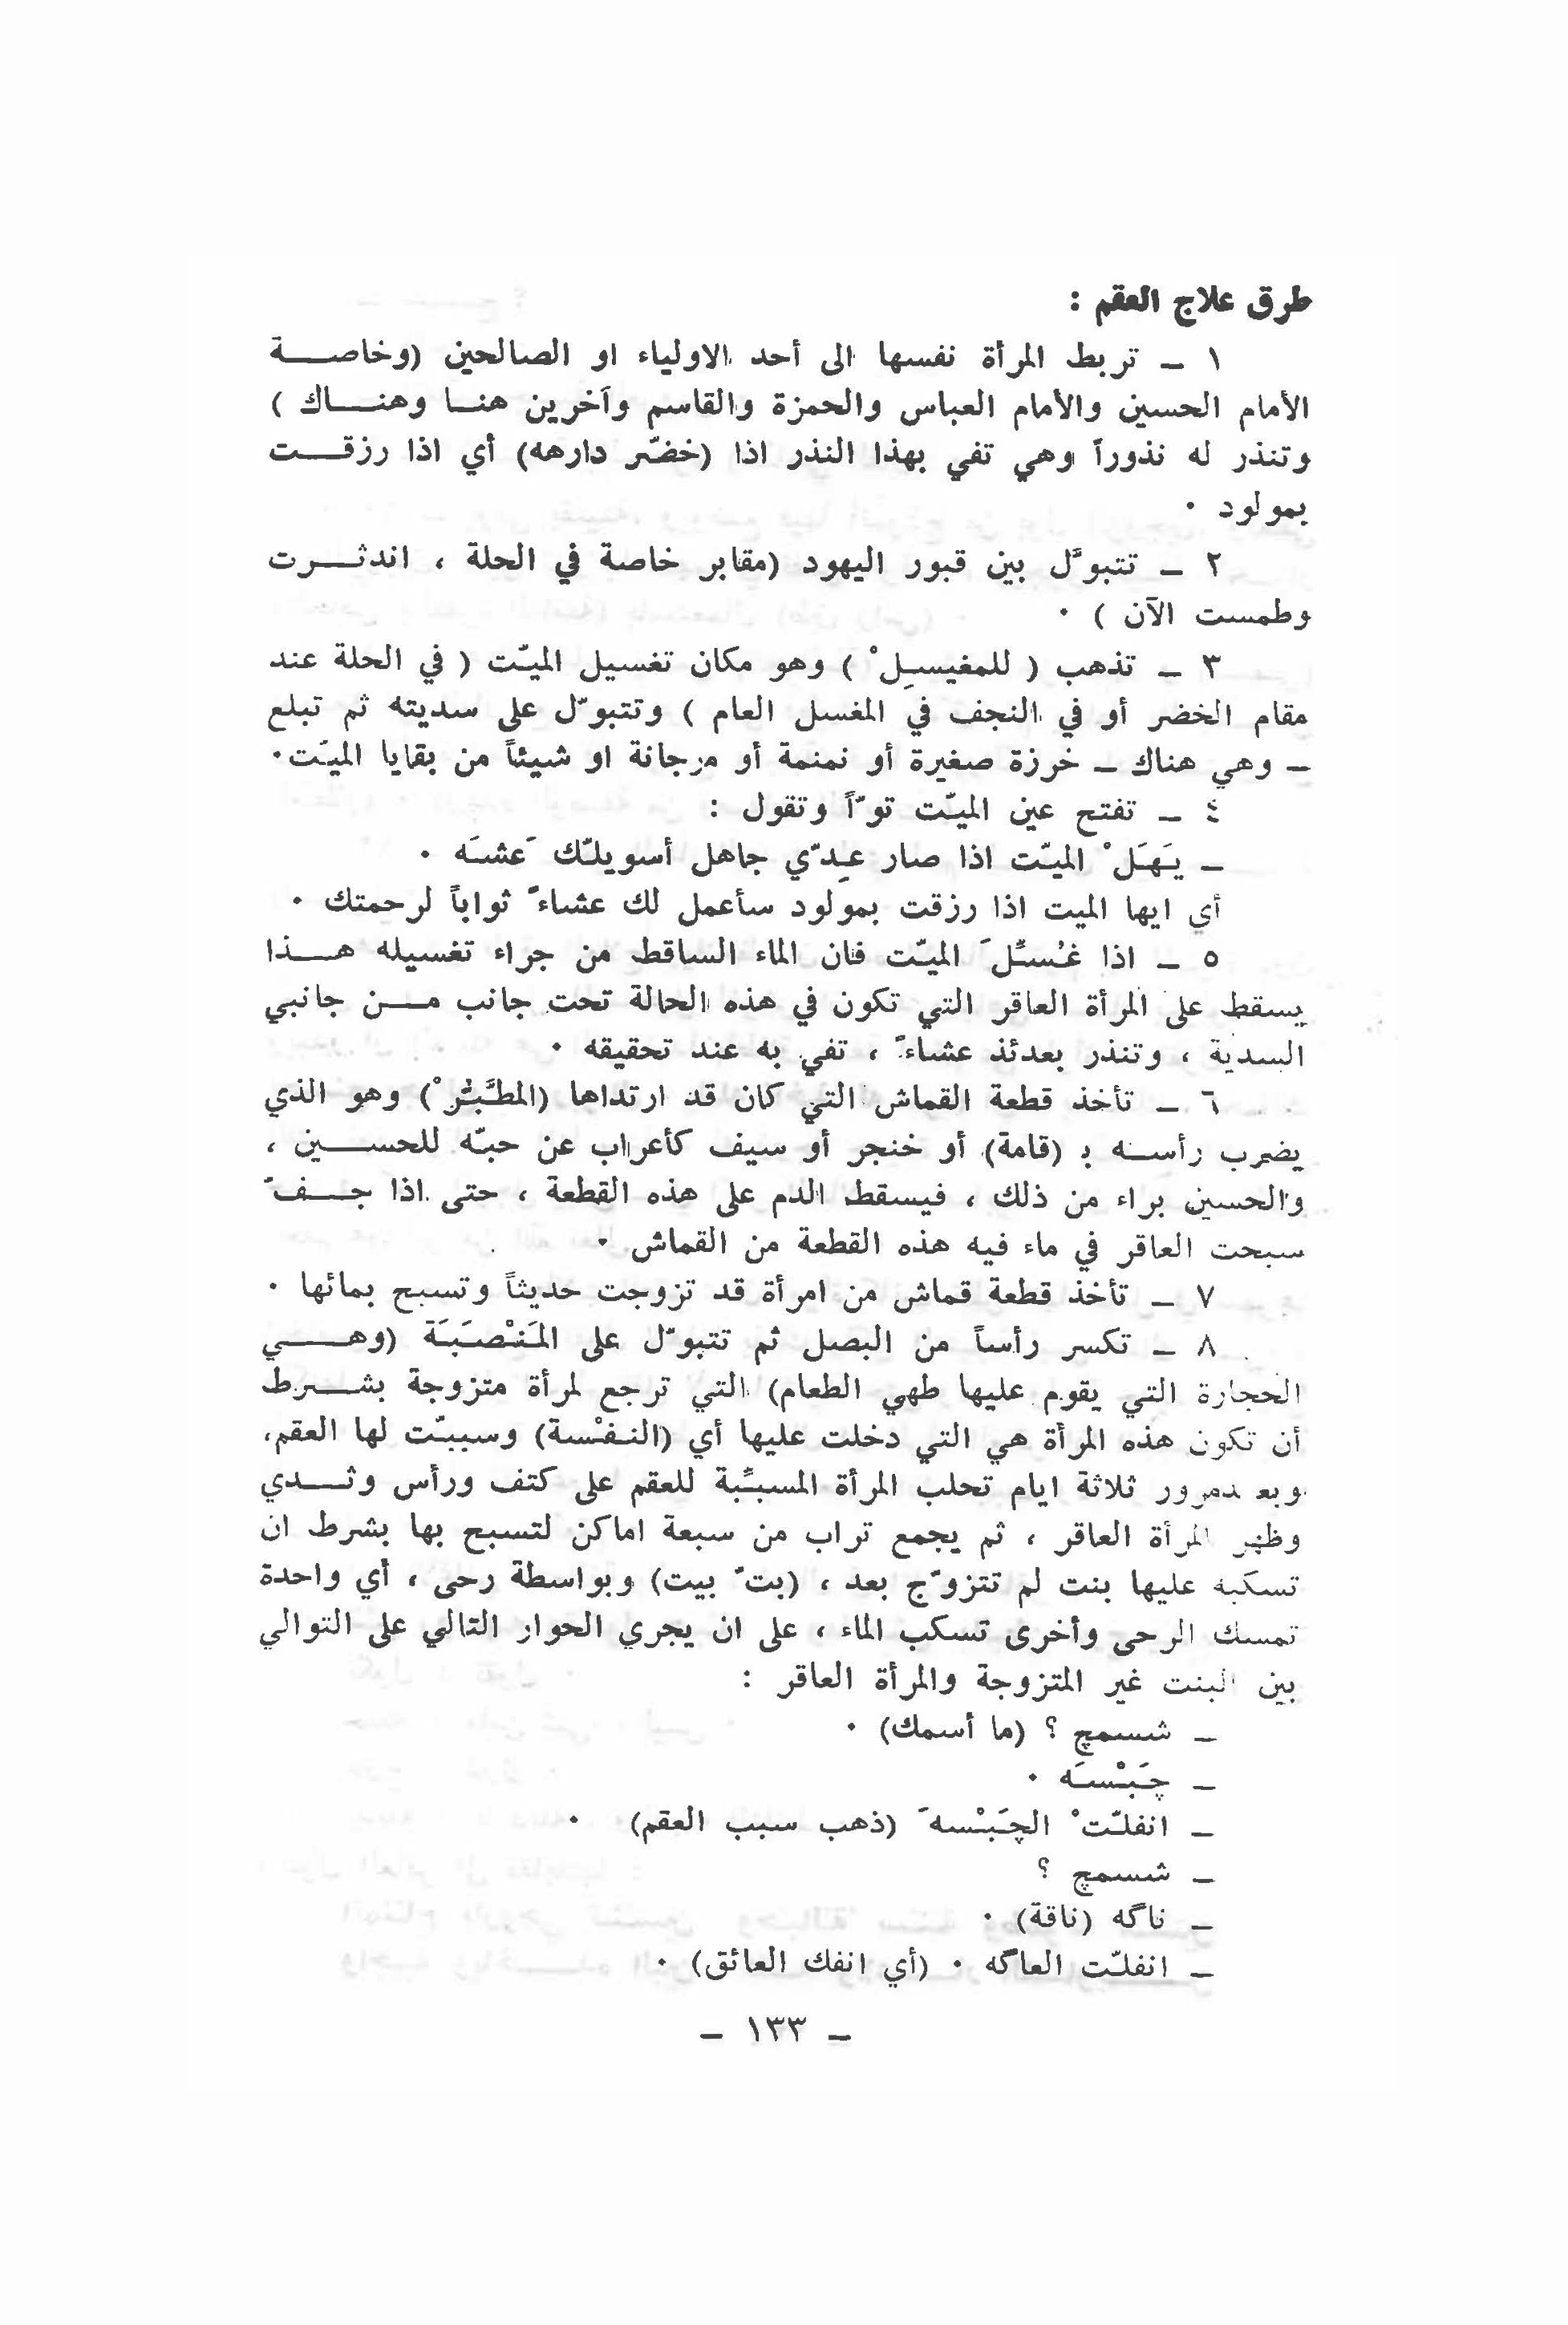 طرق علاج العقم :
١ – تربط المرأة نفسها الى أحد الاولياء او الصالحين (وخاصة
الأمام الحسين والأمام العباس والحمزة والقاسم وآخرين هنا وهناك )
وتنذر له نذوراً وهي تفي بهذا النذر اذا (خضّر دارهه) أي اذا رزقت
بمولود ٠
٢ – تتبوَّل بين قبور اليهود (مقابر خاصة في الحلة ، اندثرت
وطمست الآن ) ٠
٣ – تذهب ( للمغيسِلْ ) وهو مكان تغسيل الميّت ( في الحلة عند
مقام الخضر أو في النجف في المغسل العام ) وتتبوّل على سديته ثم تبلع
– وهي هناك – خرزة صغيرة أو نمنمة أو مرجانة او شيئاً من بقايا الميّت٠
٤ – تفتح عين الميّت توّاً وتقول :
– يَهَلْ الميّت اذا صار عِدّي جاهل أسويلّك َعشَه ٠
أي ايها الميت اذا رزقت بمولود سأعمل لك عشاءً ثواباً لرحمتك ٠
٥ – اذا غُسِّلَ الميّت فان الماء الساقط من جراء تغسيله هذا
يسقط على المرأة العاقر التي تكون في هذه الحالة تحت جانب من جانبي
السدية ، وتنذر بعدئذ عشاءً ، تفي به عند تحقيقه ٠
٦ – تأخذ قطعة القماش التي كان قد ارتداها (المطَّبِّرْ) وهو الذي
يضرب رأسه بـ (قامة) أو خنجر أو سيف كأعراب عن حبّه للحسين ،
والحسين براء من ذلك ، فيسقط الدم على هذه القطعة ، حتى اذا جفّ
سبحت العاقر في ماء فيه هذه القطعة من القماش ٠
٧ – تأخذ قطعة قماش من امرأة قد تزوجت حديثاً وتسبح بمائها ٠
٨ – تكسر رأساً من البصل ثم تتبوّل على المَنْصَبَة (وهي
الحجارة التي يقوم عليها طهي الطعام) التي ترجع لمرأة متزوجة بشرط
أن تكون هذه المرأة هي التي دخلت عليها أي (النفْسة) وسببّت لها العقم،
وبعد مرور ثلاثة ايام تحلب المرأة المسبِّبة للعقم على كتف ورأس وثدي
وظهر المرأة العاقر ، ثم يجمع تراب من سبعة اماكن لتسبح بها بشرط ان
تسكبه عليها بنت لم تتزوّج بعد ، (بتّ بيت) وبواسطة رحى ، أي واحدة
تمسك الرحى وأخرى تسكب الماء ، على ان يجري الحوار التالي على التوالي
بين البنت غير المتزوجة والمرأة العاقر :
– شسمچ ؟ (ما أسمك) ٠
– چَبْسَه ٠
– انفلّتْ الچَبْسهَ (ذهب سبب العقم) ٠
– شسمچ ؟
– ناگه (ناقة) ٠
– انفلّت العاگه ٠ (أي انفك العائق) ٠
– ١٣٣ –